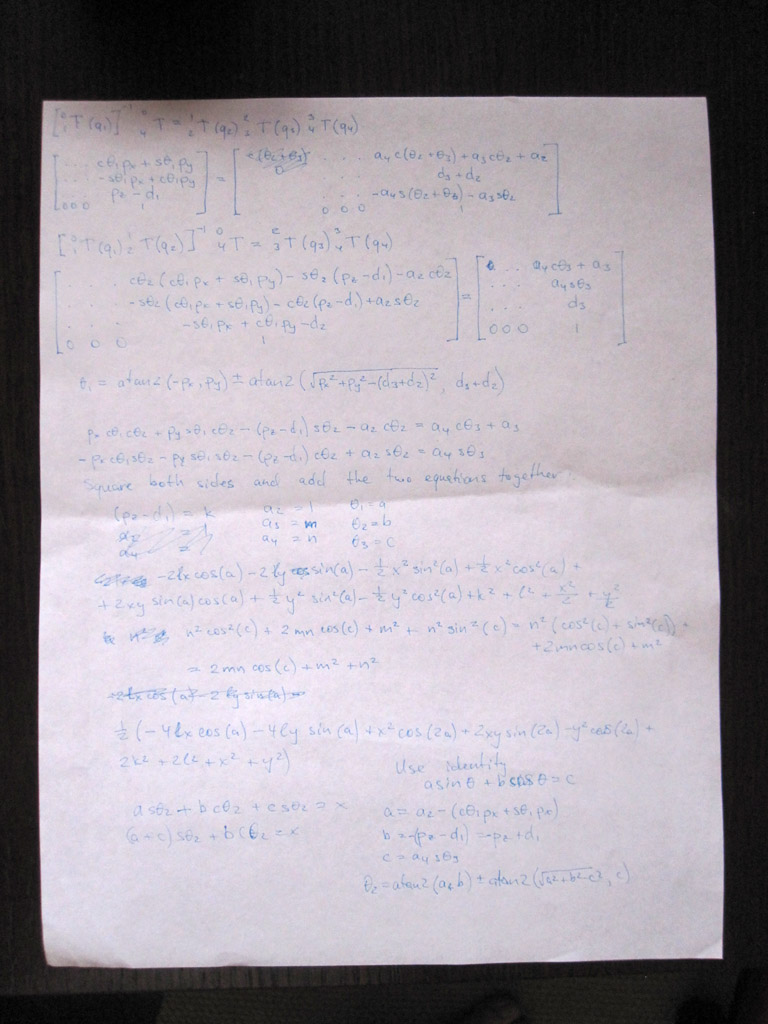 [⁰₁T(q₁)]⁻¹ ⁰₄T = ¹₂T(q₂) ²₃T(q₃) ³₄T(q₄)
[... cθ₁px + sθ₁py] = [... a₄c(θ₂+θ₃) + a₃cθ₂ + a₂]
[... -sθ₁px + cθ₁py] [... d₃+d₂]
[... pz - d₁] [... -a₄s(θ₂+θ₃) - a₃sθ₂]
[0 0 0 1] [0 0 0 1]
[⁰₁T(q₁) ¹₂T(q₂)]⁻¹ ⁰₄T = ²₃T(q₃) ³₄T(q₄)
[... cθ₂(cθ₁px + sθ₁py) - sθ₂(pz-d₁) - a₂cθ₂] = [... a₄cθ₃ + a₃]
[... -sθ₂(cθ₁px + sθ₁py) - cθ₂(pz-d₁) + a₂sθ₂] [... a₄sθ₃]
[... -sθ₁px + cθ₁py - d₂] [... d₃]
[0 0 0 1] [0 0 0 1]
θ₁ = atan2(-px, py) ± atan2(√px²+py²-(d₃+d₂)², d₃+d₂)
px cθ₁cθ₂ + py sθ₁cθ₂ - (pz-d₁)sθ₂ - a₂cθ₂ = a₄cθ₃ + a₃
-px cθ₁sθ₂ - py sθ₁sθ₂ - (pz-d₁)cθ₂ + a₂sθ₂ = a₄sθ₃
Square both sides and add the two equations together.
(pz-d₁) = k a₂ = l θ₁ = a
a₃ = m θ₂ = b
a₄ = n θ₃ = c
-2lx cos(a) - 2ly sin(a) - ½x² sin²(a) + ½x² cos²(a) +
+ 2xy sin(a) cos(a) + ½y² sin²(a) - ½y² cos²(a) + k² + l² + x²/2 + y²/2
n² cos²(c) + 2mn cos(c) + m² + n² sin²(c) = n²(cos²(c) + sin²(c)) +
+2mn cos(c) + m²
= 2mn cos(c) + m² + n²
+2lx cos(a) - 2ly sin(a) =
½(-4lx cos(a) - 4ly sin(a) + x² cos(2a) + 2xy sin(2a) - y² cos(2a) +
2k² + 2l² + x² + y²)
Use identity
a sinθ + b cosθ = c
a sθ₂ + b cθ₂ + c sθ₂ = x
(a+c) sθ₂ + b cθ₂ = x
a = a₂ - (cθ₁px + sθ₁px)
b = -(pz-d₁) = -pz + d₁
c = a₄ sθ₃
θ₂ = atan2(a, b) ± atan2(√a²+b²-c², c)